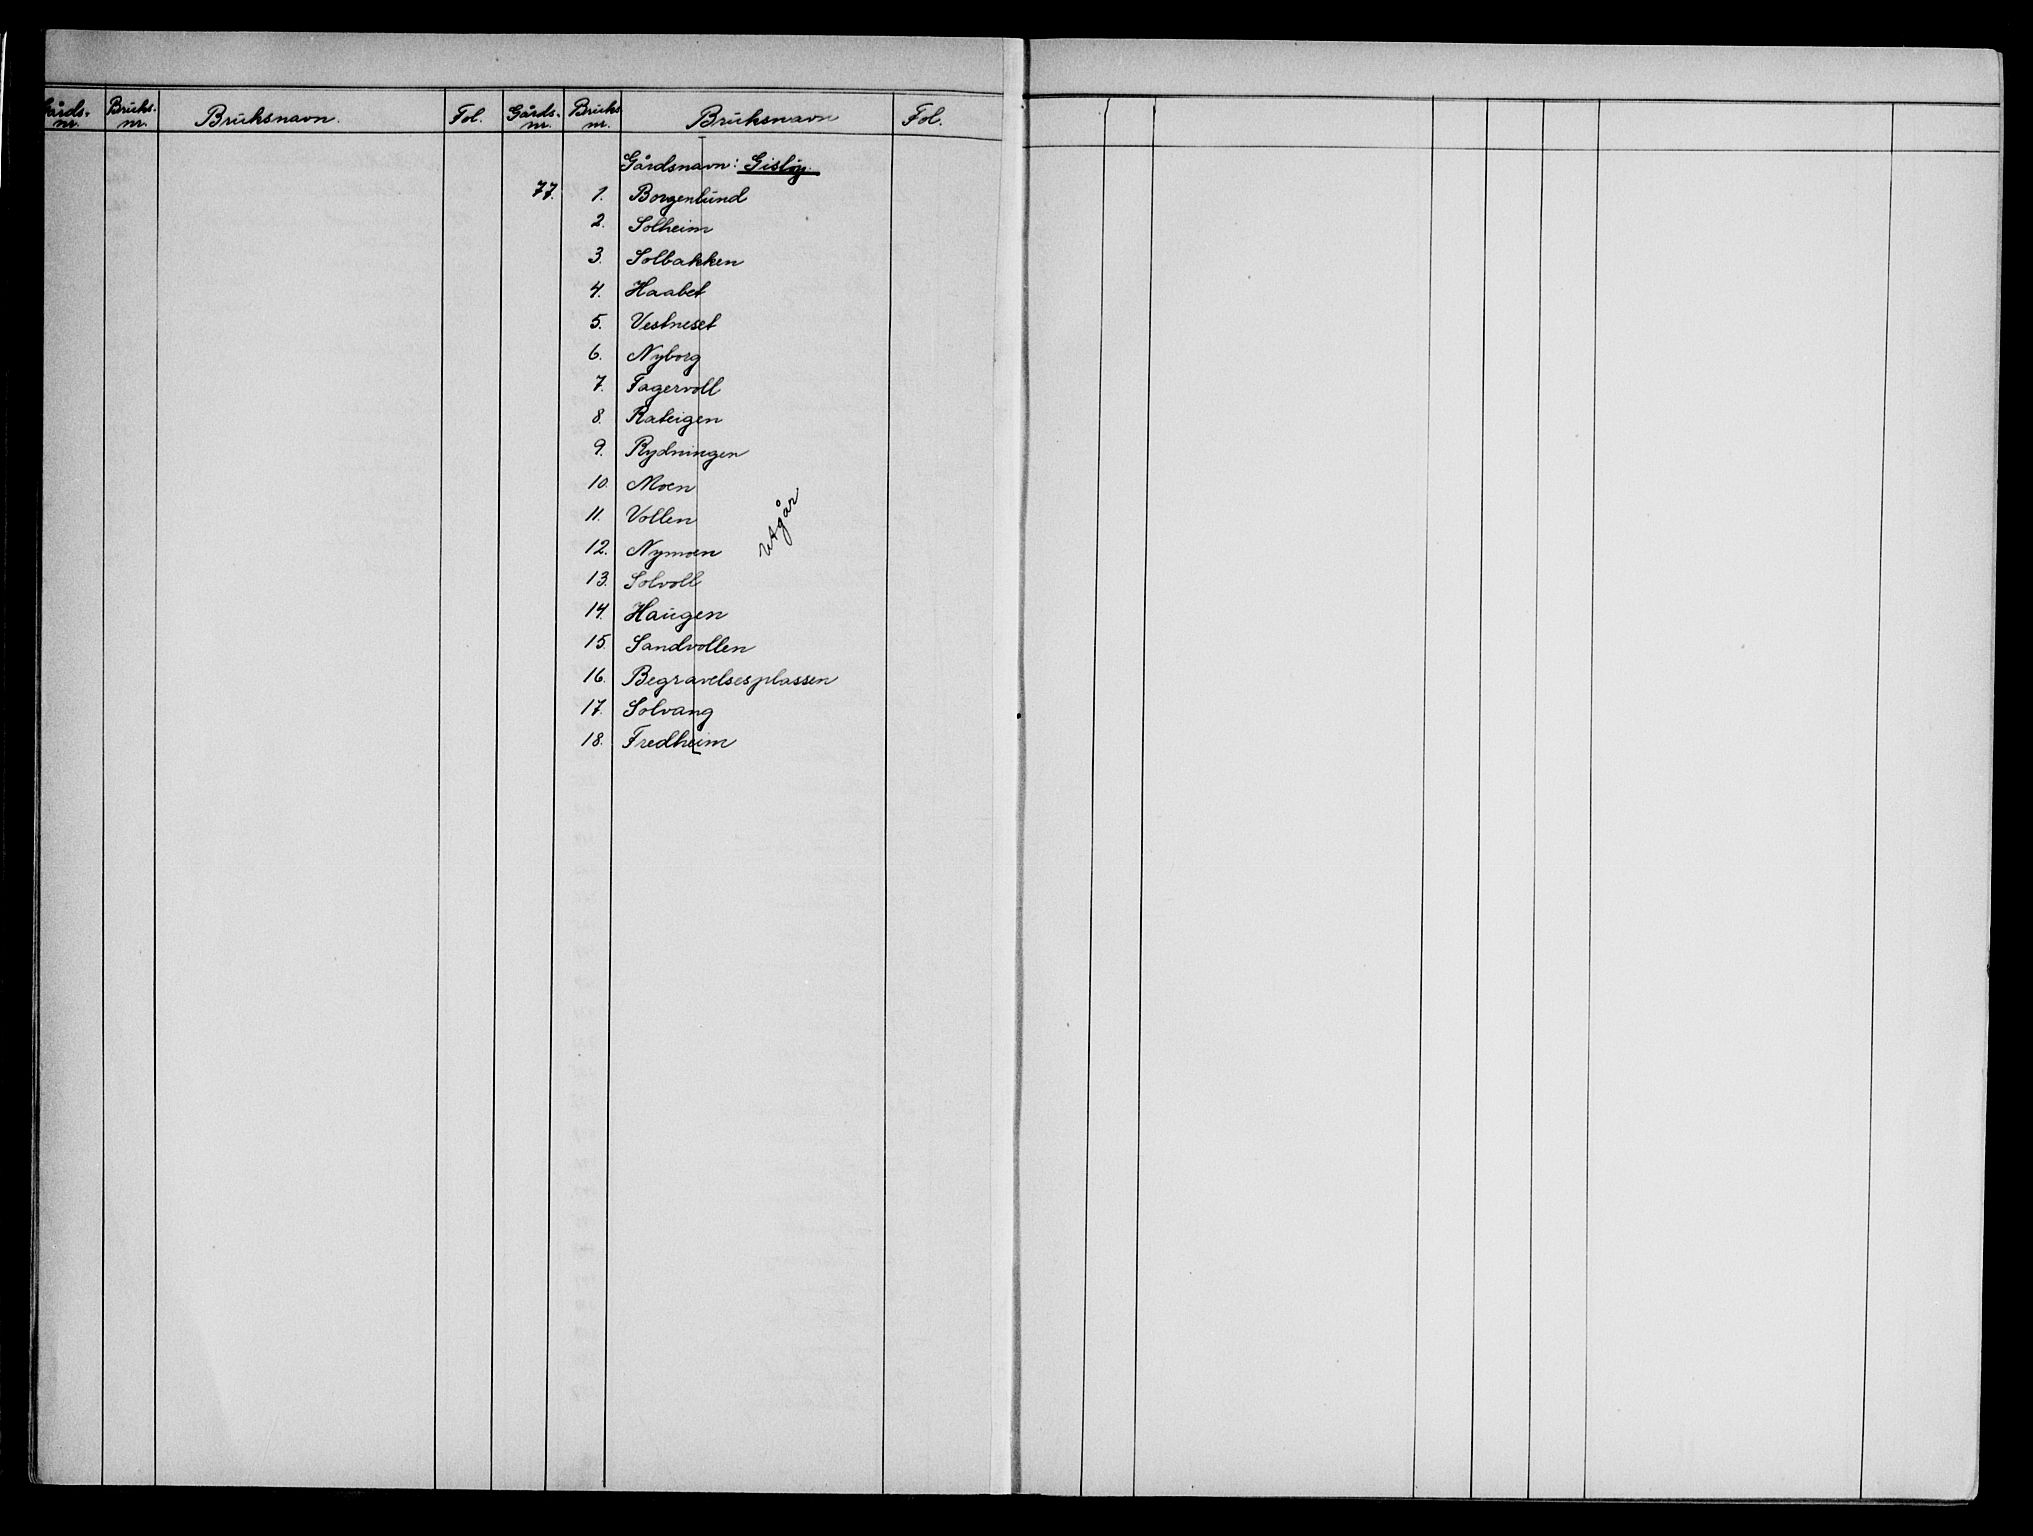 Gårds- nr. Bruks- nr. Bruksnavn. Fol. Gårds- nr. Bruks nr. Bruksnavn Fol.
Gårdsnavn: Gisløy.
77. 1. Borgenlund
2. Solheim
3. Solbakken
4. Haabet
5. Vestneset
6. Nyborg
7. Fagervoll
8. Rateigen
9. Rydningen
10. Moen
11. Vollen
12. Nymoen
utgår
13. Solvoll
14. Haugen
15. Sandvollen
16. Begravelsesplassen
17. Solvang
18. Fredheim